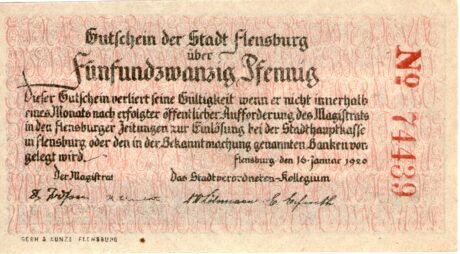 Gutschein der Stadt Flensburg
über
Fünfundzwanzig Pfennig
Dieser Gutschein verliert seine Gültigkeit wenn er nicht innerhalb
eines Monats nach erfolgter öffentlicher Aufforderung des Magistrats
in den Flensburger Zeitungen zur Einlösung bei der Stadthauptkasse
in Flensburg oder den in der Bekanntmachung genannten Banken vor-
gelegt wird.
Flensburg, den 16 Januar 1920
Der Magistrat Das Stadtverordneten-Kollegium
No 74439
GERH & KUNZE FLENSBURG